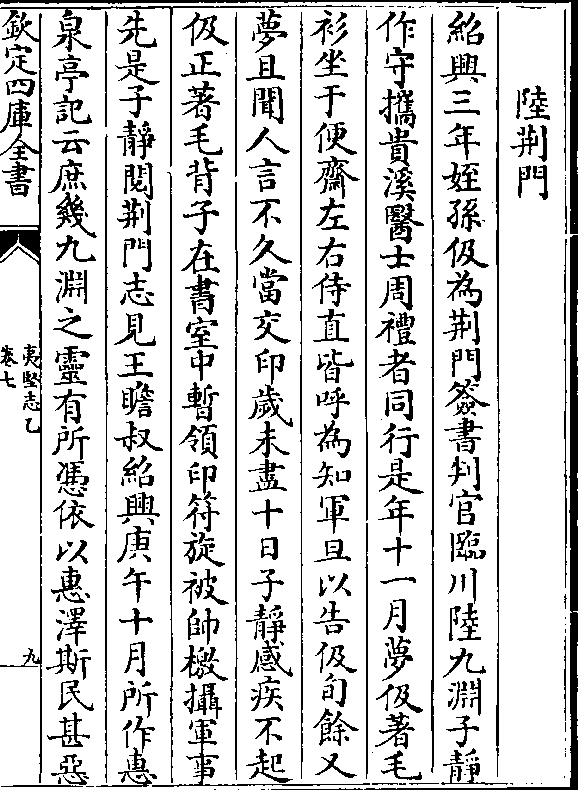 陸荆門
紹興三年姪孫伋為荆門簽書判官臨川陸九淵子靜
作守攜貴溪醫士周禮者同行是年十一月夢伋著毛
衫坐于便齋左右侍直皆呼為知軍旦以告伋旬餘又
夢且聞人言不久當交印歲未盡十日子靜感疾不起
伋正著毛背子在書室中暫領印符旋被帥檄攝軍事
先是子靜閱荆門志見王瞻叔紹興庚午十月所作惠
泉亭記云庶幾九淵之靈有所憑依以惠澤斯民甚惡
欽定四庫全書
夷堅志乙
卷七
九